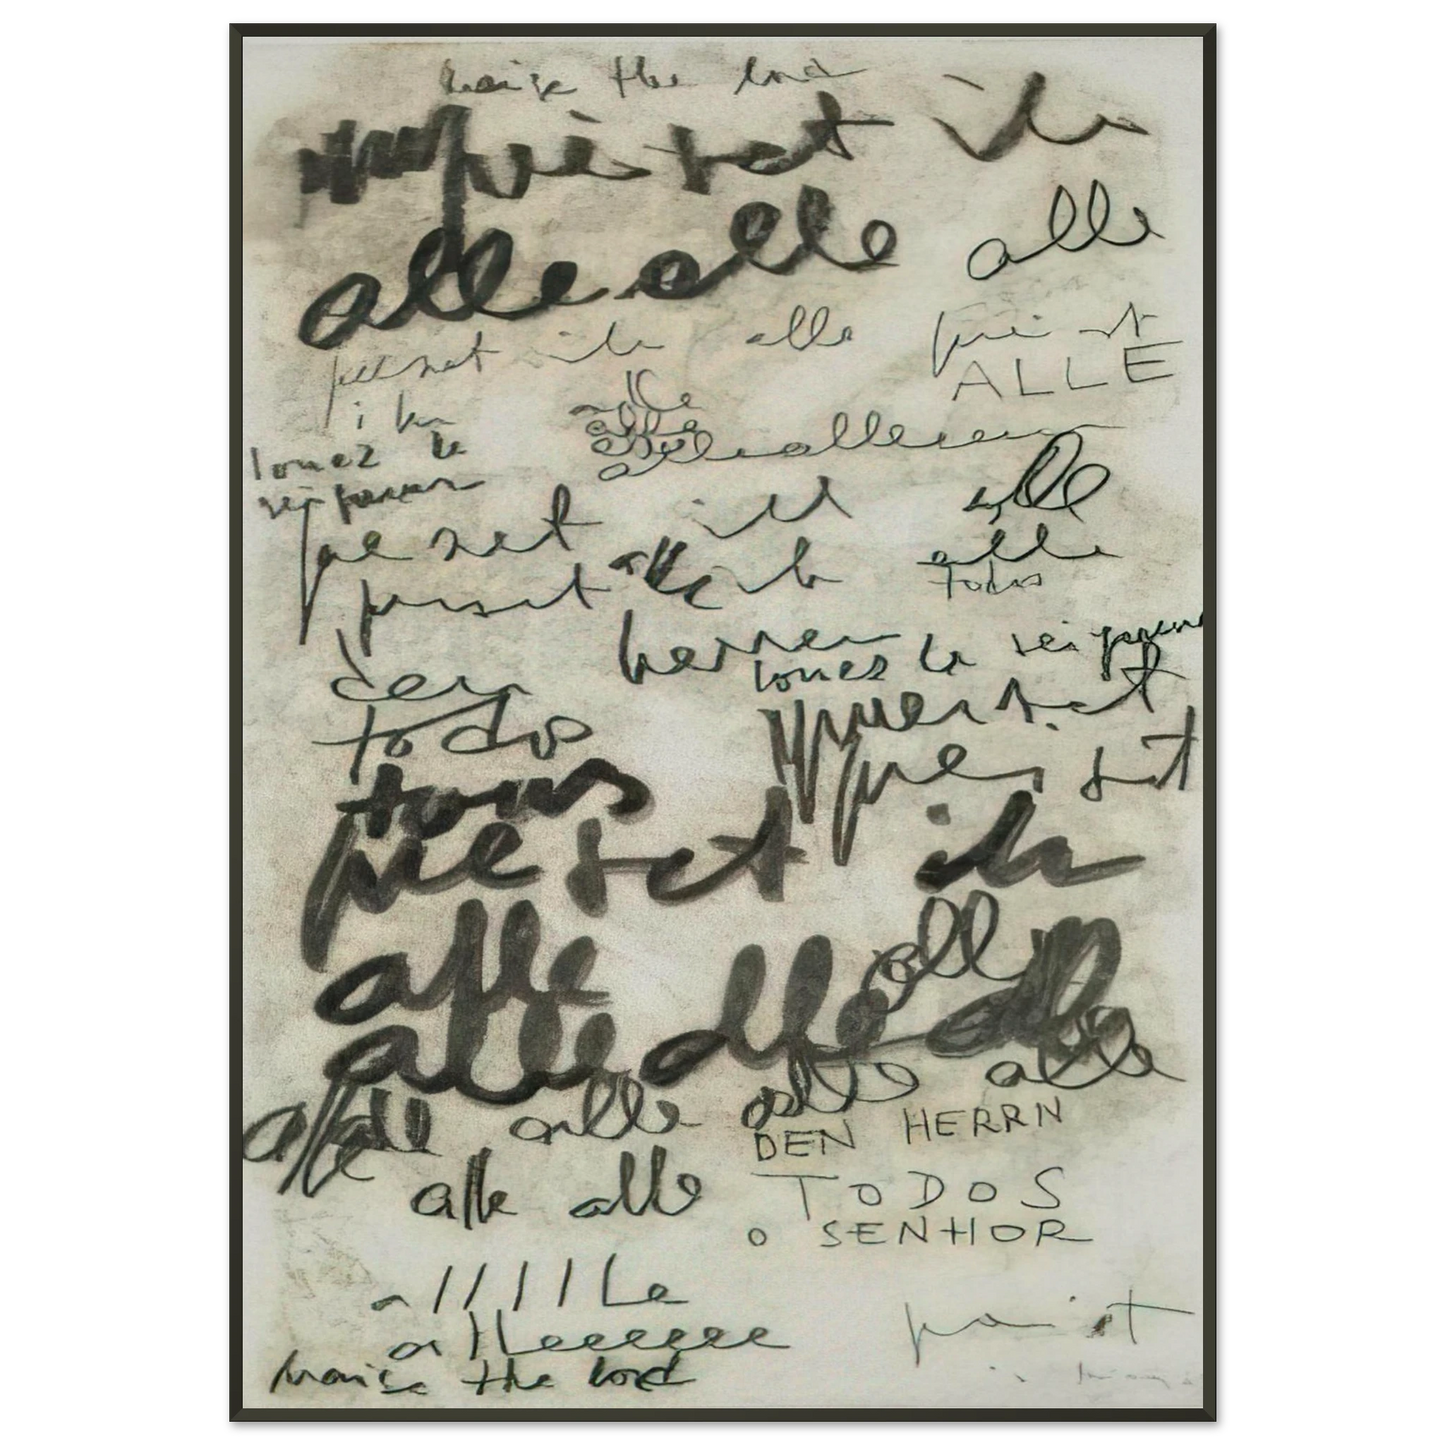 praise the lord
preiset ihn
alle alle alle
preiset ihn alle preiset
ALLE
ihn alle
louez le alle
seigneur alle alleeee
preiset ihn alle
preiset alle ihn alle
Todos
herren louez le seigneur
den preiset
todos preiset
tous
preiset ihn
alle alle
alle alle alle
alle alle alle alle
DEN HERRN
alle alle TODOS
O SENHOR
allllLe
allleeeeeee preist
praise the lord